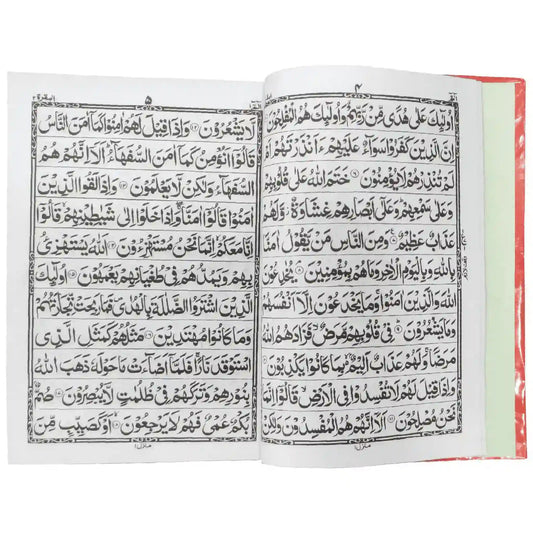 ۴
اُولٰٓئِكَ عَلٰى هُدًى مِّنْ رَّبِّهِمْ وَاُولٰٓئِكَ هُمُ الْمُفْلِحُوْنَ
اِنَّ الَّذِيْنَ كَفَرُوْا سَوَآءٌ عَلَيْهِمْ ءَاَنْذَرْتَهُمْ اَمْ
لَمْ تُنْذِرْهُمْ لَا يُؤْمِنُوْنَ ۝ خَتَمَ اللّٰهُ عَلٰى قُلُوْبِهِمْ
وَعَلٰى سَمْعِهِمْ وَعَلٰٓى اَبْصَارِهِمْ غِشَاوَةٌ وَّلَهُمْ
عَذَابٌ عَظِيْمٌ ۝ وَمِنَ النَّاسِ مَنْ يَّقُوْلُ اٰمَنَّا
بِاللّٰهِ وَبِالْيَوْمِ الْاٰخِرِ وَمَا هُمْ بِمُؤْمِنِيْنَ ۝ يُخٰدِعُوْنَ
اللّٰهَ وَالَّذِيْنَ اٰمَنُوْا وَمَا يَخْدَعُوْنَ اِلَّآ اَنْفُسَهُمْ
وَمَا يَشْعُرُوْنَ ۝ فِيْ قُلُوْبِهِمْ مَّرَضٌ فَزَادَهُمُ اللّٰهُ
مَرَضًا وَلَهُمْ عَذَابٌ اَلِيْمٌۢ بِمَا كَانُوْا يَكْذِبُوْنَ ۝
وَاِذَا قِيْلَ لَهُمْ لَا تُفْسِدُوْا فِي الْاَرْضِ قَالُوْٓا اِنَّمَا
نَحْنُ مُصْلِحُوْنَ ۝ اَلَآ اِنَّهُمْ هُمُ الْمُفْسِدُوْنَ وَلٰكِنْ
منزل۱
البقرة ۲
۵
لَّا يَشْعُرُوْنَ ۝ وَاِذَا قِيْلَ لَهُمْ اٰمِنُوْا كَمَآ اٰمَنَ النَّاسُ
قَالُوْٓا اَنُؤْمِنُ كَمَآ اٰمَنَ السُّفَهَآءُ اَلَآ اِنَّهُمْ هُمُ
السُّفَهَآءُ وَلٰكِنْ لَّا يَعْلَمُوْنَ ۝ وَاِذَا لَقُوا الَّذِيْنَ
اٰمَنُوْا قَالُوْٓا اٰمَنَّا وَاِذَا خَلَوْا اِلٰى شَيٰطِيْنِهِمْ قَالُوْٓا
اِنَّا مَعَكُمْ اِنَّمَا نَحْنُ مُسْتَهْزِءُوْنَ ۝ اَللّٰهُ يَسْتَهْزِئُ
بِهِمْ وَيَمُدُّهُمْ فِيْ طُغْيَانِهِمْ يَعْمَهُوْنَ ۝ اُولٰٓئِكَ
الَّذِيْنَ اشْتَرَوُا الضَّلٰلَةَ بِالْهُدٰى فَمَا رَبِحَتْ تِّجَارَتُهُمْ
وَمَا كَانُوْا مُهْتَدِيْنَ ۝ مَثَلُهُمْ كَمَثَلِ الَّذِي
اسْتَوْقَدَ نَارًا فَلَمَّآ اَضَآءَتْ مَا حَوْلَهٗ ذَهَبَ اللّٰهُ
بِنُوْرِهِمْ وَتَرَكَهُمْ فِيْ ظُلُمٰتٍ لَّا يُبْصِرُوْنَ ۝ صُمٌّۢ
بُكْمٌ عُمْيٌ فَهُمْ لَا يَرْجِعُوْنَ ۝ اَوْ كَصَيِّبٍ مِّنَ
منزل۱